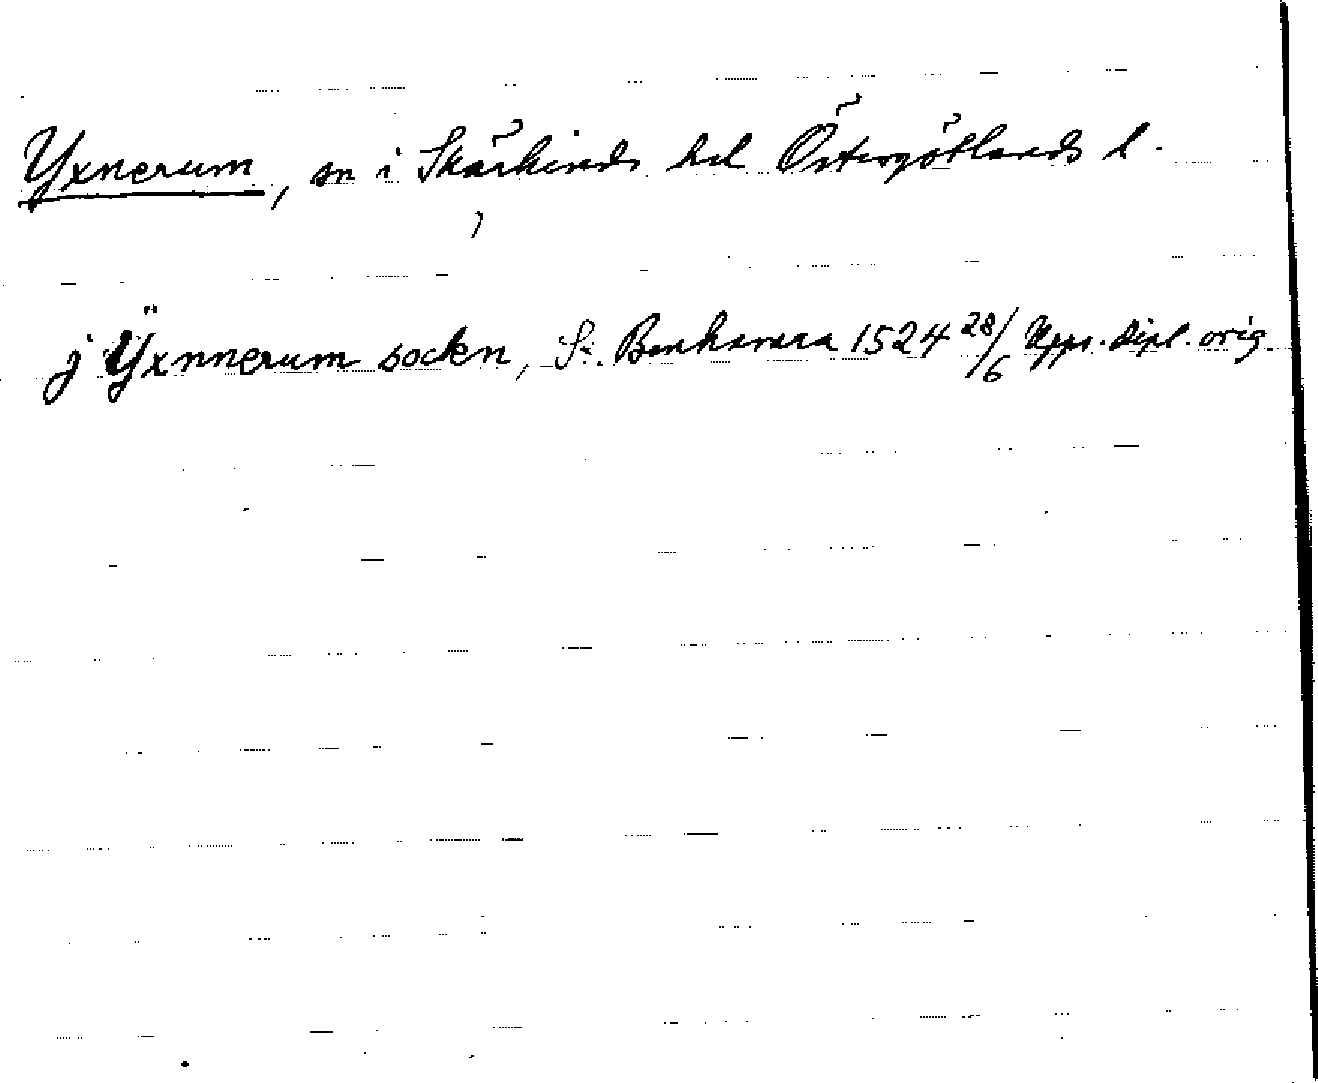 Yxnerum, sn i Skärkinds hd Östergötlands l.
j Ÿxnnerum socken, S:. 1524 28/6 Upps. dipl. orig.